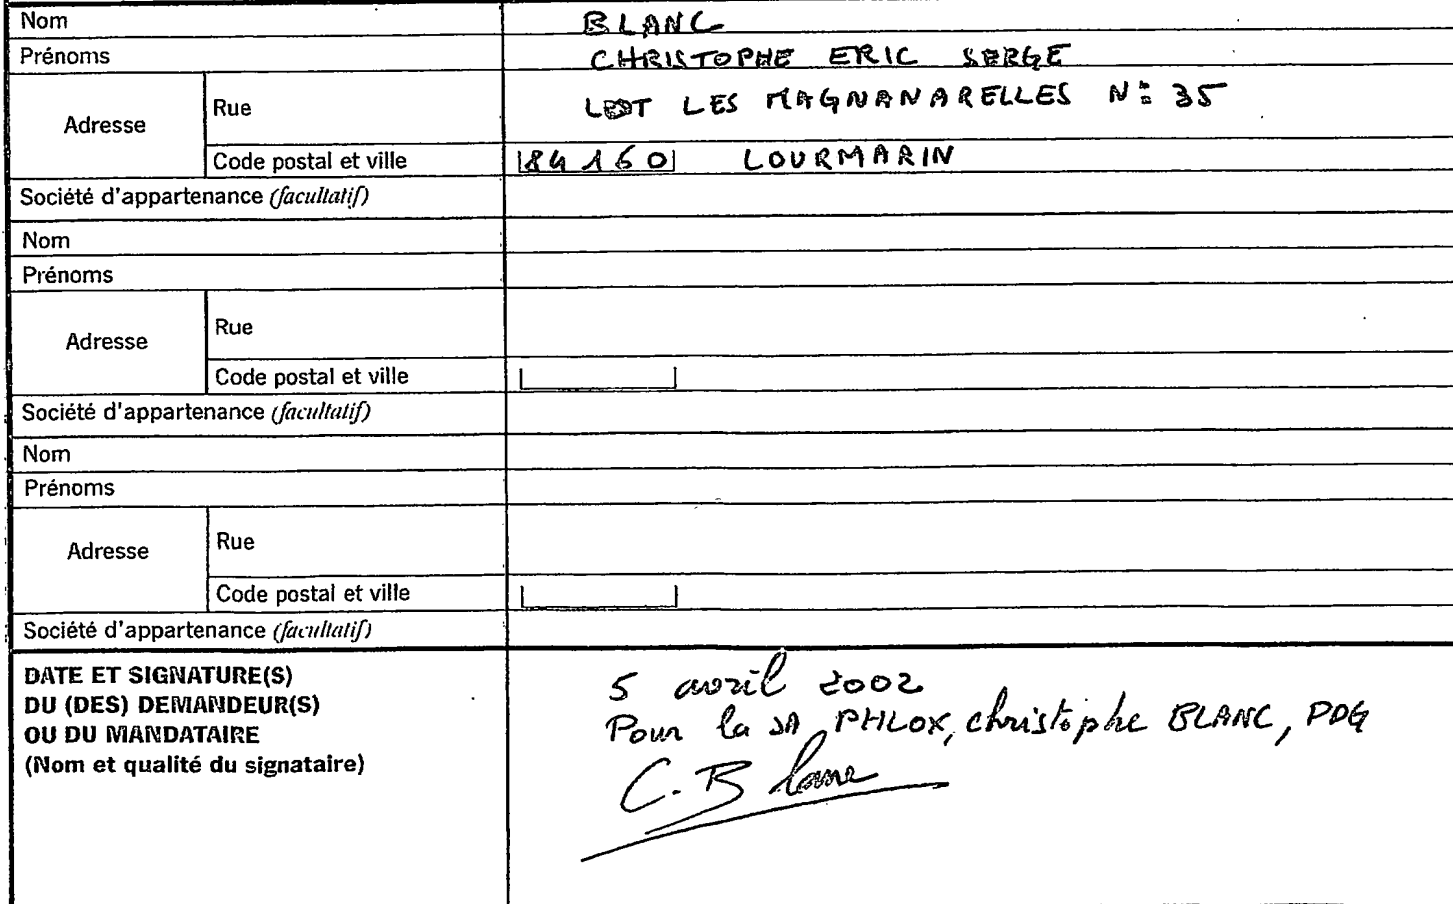 Nom BLANC
Prénoms CHRISTOPHE ERIC SERGE
Adresse Rue LOT LES MAGNANARELLES N: 35
Code postal et ville 84160 LOURMARIN
Société d'appartenance (facultatif)
Nom
Prénoms
Adresse Rue
Code postal et ville
Société d'appartenance (facultatif)
Nom
Prénoms
Adresse Rue
Code postal et ville
Société d'appartenance (facultatif)
DATE ET SIGNATURE(S)
DU (DES) DEMANDEUR(S)
OU DU MANDATAIRE
(Nom et qualité du signataire)
5 avril 2002
Pour la SA PHLOX, christophe BLANC, PDG
C. Blanc